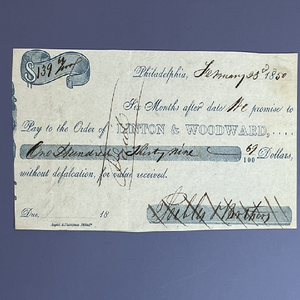 $139 69/100
Philadelphia, February 23d 1850
Six Months after date We promise to
Pay to the Order of LINTON & WOODWARD,
One Hundred Thirty nine 69/100 Dollars,
without defalcation, for value received.
Due, 18